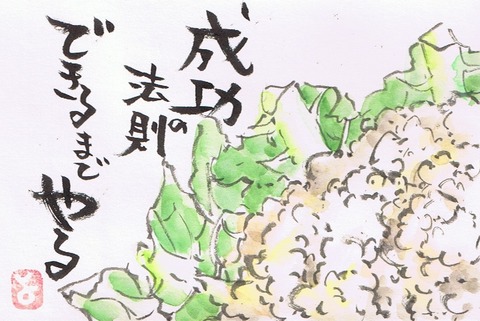 成功の
法則
できるまで
やる
そ